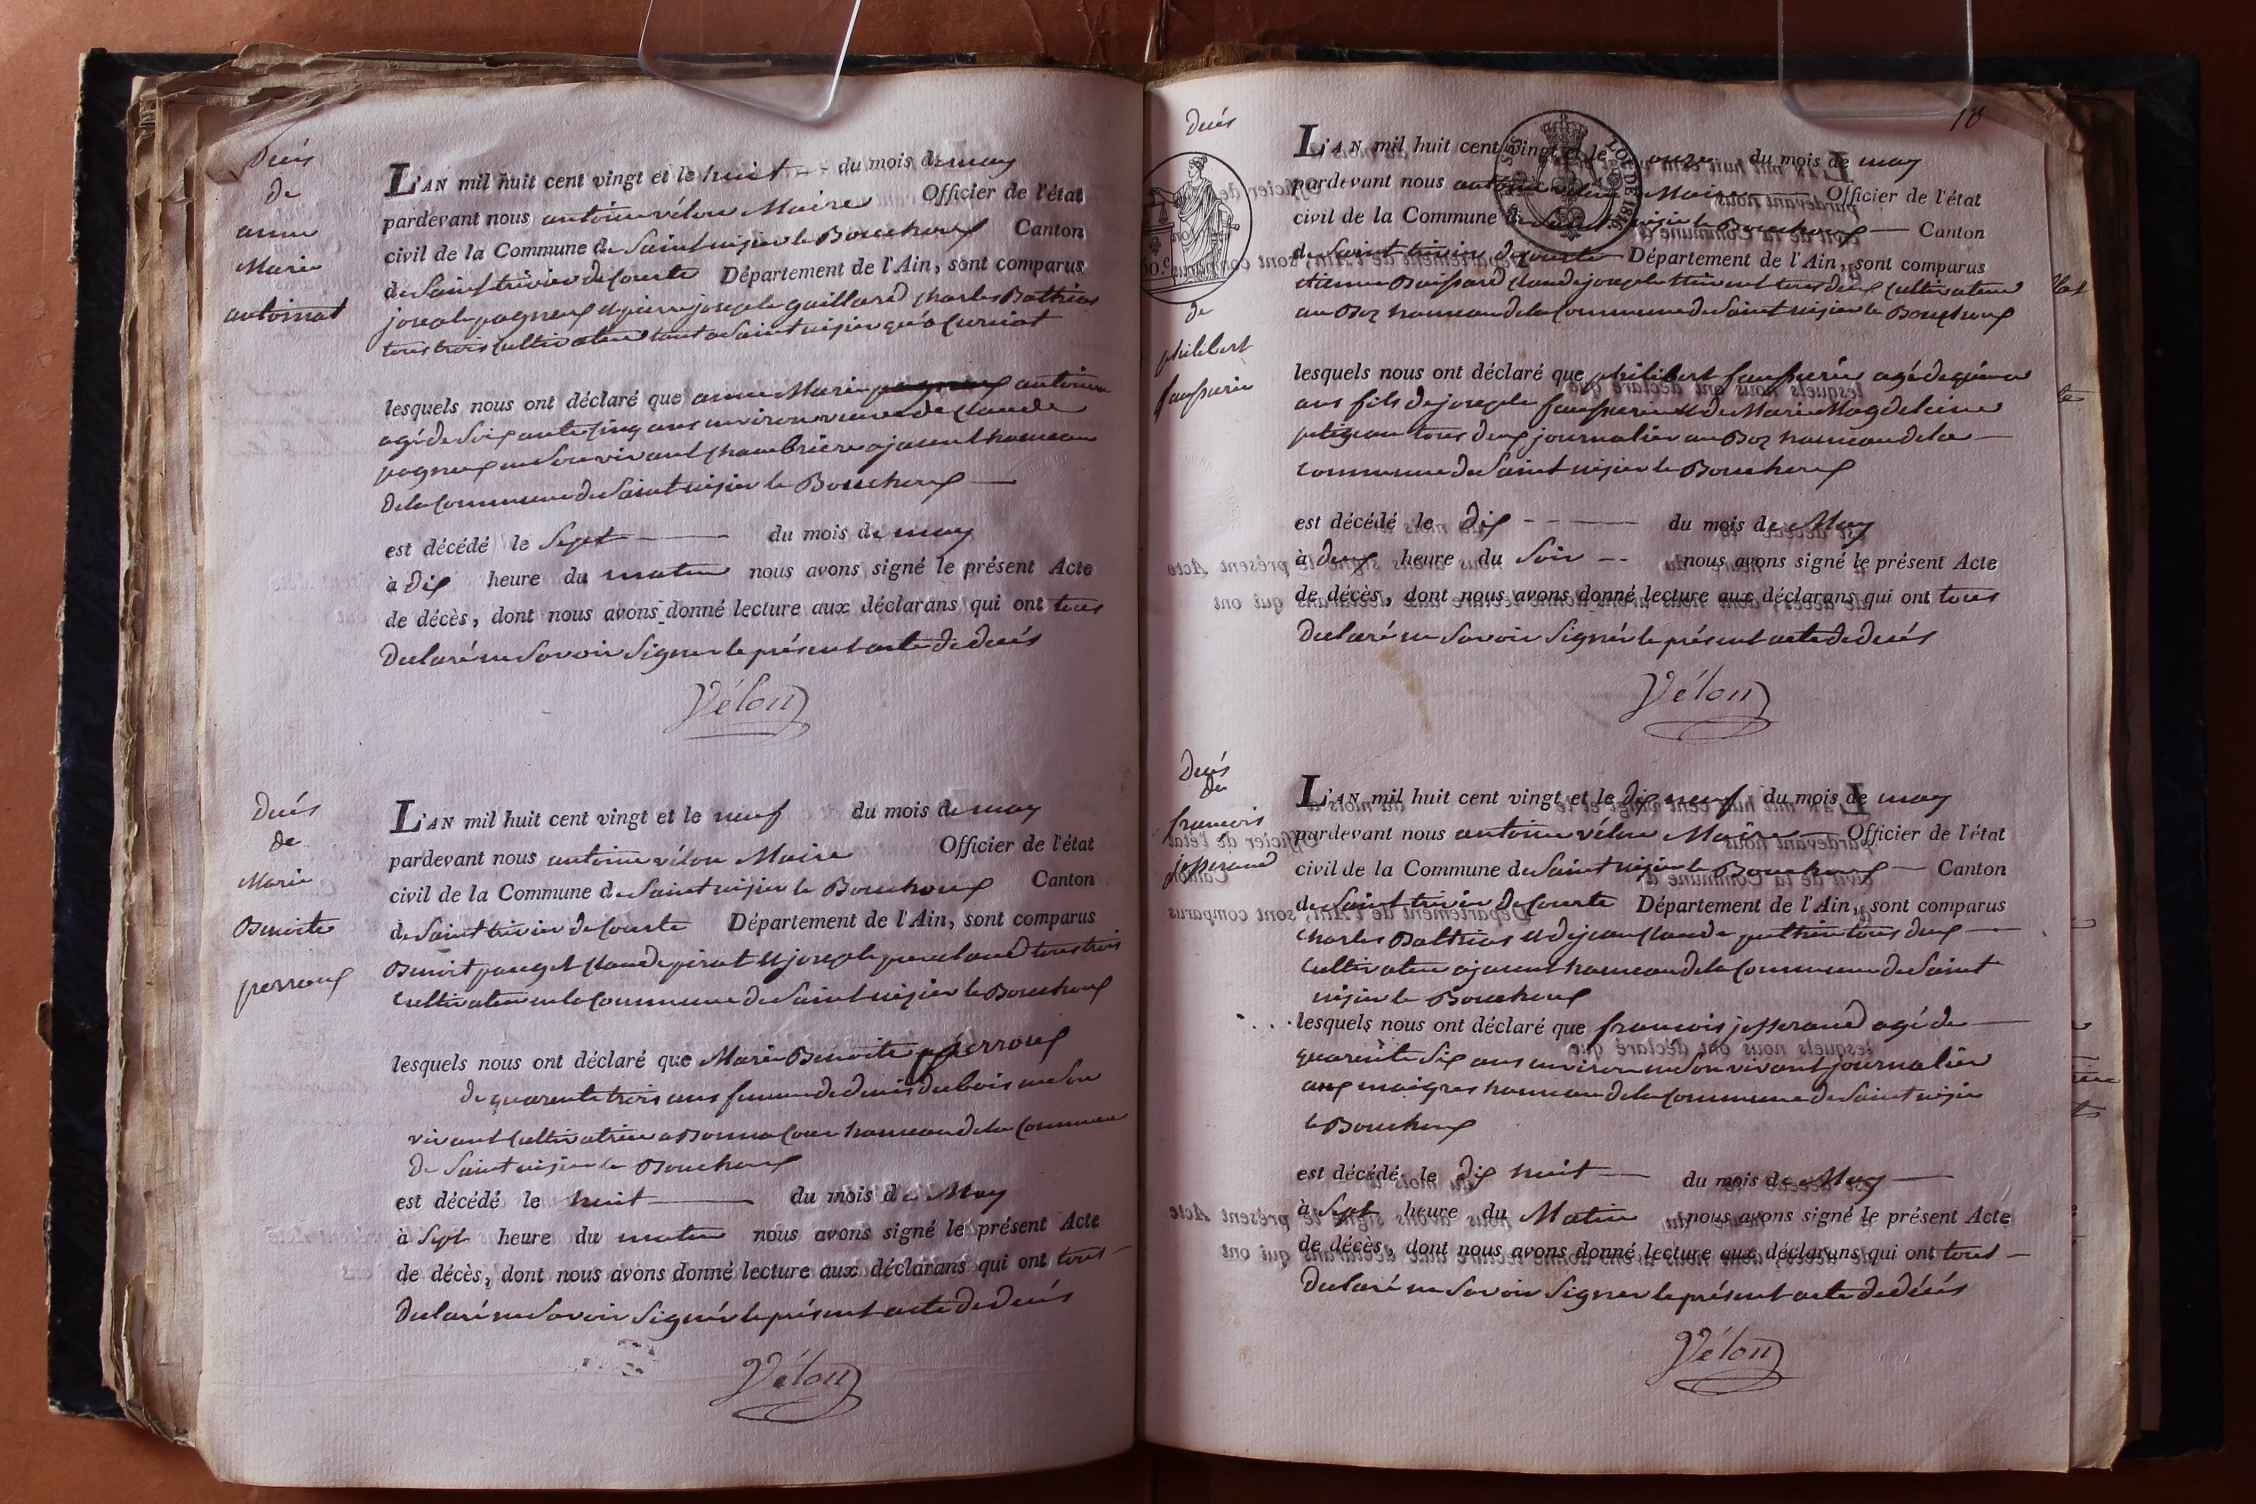 Decés
de
anne
Marie
antoinat
L'AN mil huit cent vingt et le huit du mois de may
pardevant nous antoine vélon Maire Officier de l'état
civil de la Commune de Saint nizier le Bouchoux Canton
de Saint trivier de Courte Département de l'Ain, sont comparus
joseph pagneux et pierre joseph gaillard charles Bathias
tous trois cultivateur tant a Saint nizier qu'a Curciat
lesquels nous ont déclaré que anne Marie antoinat
agé de Soixante cinq ans environ veuve de Claude
pagneux en Son vivant chambrière a jasent hameau
de la Commune de Saint nizier le Bouchoux
est décédé le Sept du mois de may
à dix heure du matin nous avons signé le présent Acte
de décès, dont nous avons donné lecture aux déclarans qui ont tous
declaré ne Savoir Signer le présent acte de decés
Vélon
Decés
de
Marie
Benoite
perroux
L'AN mil huit cent vingt et le neuf du mois de may
pardevant nous antoine vélon Maire Officier de l'état
civil de la Commune de Saint nizier le Bouchoux Canton
de Saint trivier de Courte Département de l'Ain, sont comparus
Benoit pauget Claude pirat et joseph tous trois
Cultivateur en la Commune de Saint nizier le Bouchoux
lesquels nous ont déclaré que Marie Benoite perroux
de quarente trois ans femme de denis dubois en Son
vivant Cultivatrice a Bonnacour hameau de la Commune
de Saint nizier le Bouchoux
est décédé le huit du mois de May
à Sept heure du matin nous avons signé le présent Acte
de décès, dont nous avons donné lecture aux déclarans qui ont tous
declaré ne Savoir Signér le présent acte de decés
Vélon
18
Decés
de
philibert
faussurier
L'AN mil huit cent vingt et le onze du mois de may
pardevant nous antoine vélon Maire Officier de l'état
civil de la Commune de Saint nizier le Bouchoux Canton
de Saint trivier de Courte Département de l'Ain, sont comparus
etienne Boissard Claude joseph tous deux Cultivateur
au Boz hameau de la Commune de Saint nizier le Bouchoux
lesquels nous ont déclaré que philibert faussurier agé de quinze
ans fils de joseph faussurier et de Marie Magdelaine
petigeau tous deux journalier au Boz hameau de la
commune de Saint nizier le Bouchoux
est décédé le dix du mois de May
à deux heure du Soir nous avons signé le présent Acte
de décès, dont nous avons donné lecture aux déclarans qui ont tous
declaré ne Savoir Signér le présent acte de decés
Vélon
Decés
de
francois
josserand
L'AN mil huit cent vingt et le dix neuf du mois de may
pardevant nous antoine vélon Maire Officier de l'état
civil de la Commune de Saint nizier le Bouchoux Canton
de Saint trivier de Courte Département de l'Ain, sont comparus
Charles Bathias et de jean Claude tous deux
Cultivateur a jasent hameau de la Commune de Saint
nizier le Bouchoux
lesquels nous ont déclaré que francois josserand agé de
quarente Six ans environ en Son vivant journalier
aux maigres hameau de la Commune de Saint nizier
le Bouchoux
est décédé le dix huit du mois de May
à Sept heure du Matin nous avons signé le présent Acte
de décès, dont nous avons donné lecture aux déclarans qui ont tous
declaré ne Savoir Signer le présent acte de décés
Vélon